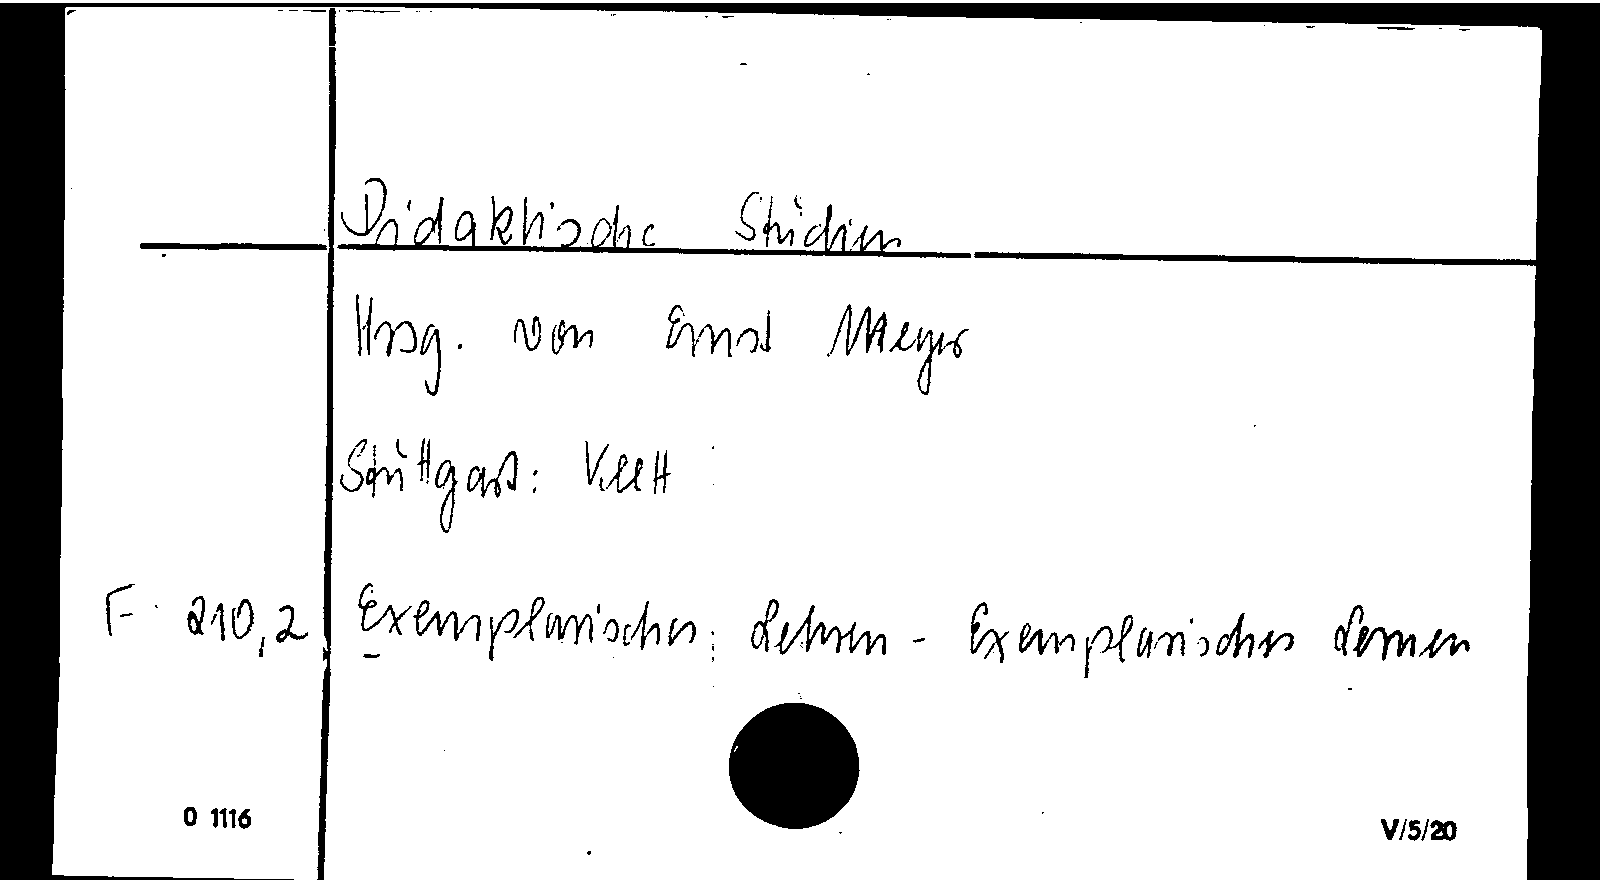 Didaktische Studien
Hrsg. von Ernst Meyer
Stuttgart: Klett
F 210,2 Exemplarisches Lehren - Exemplarisches Lernen
O 1116
V/5/20